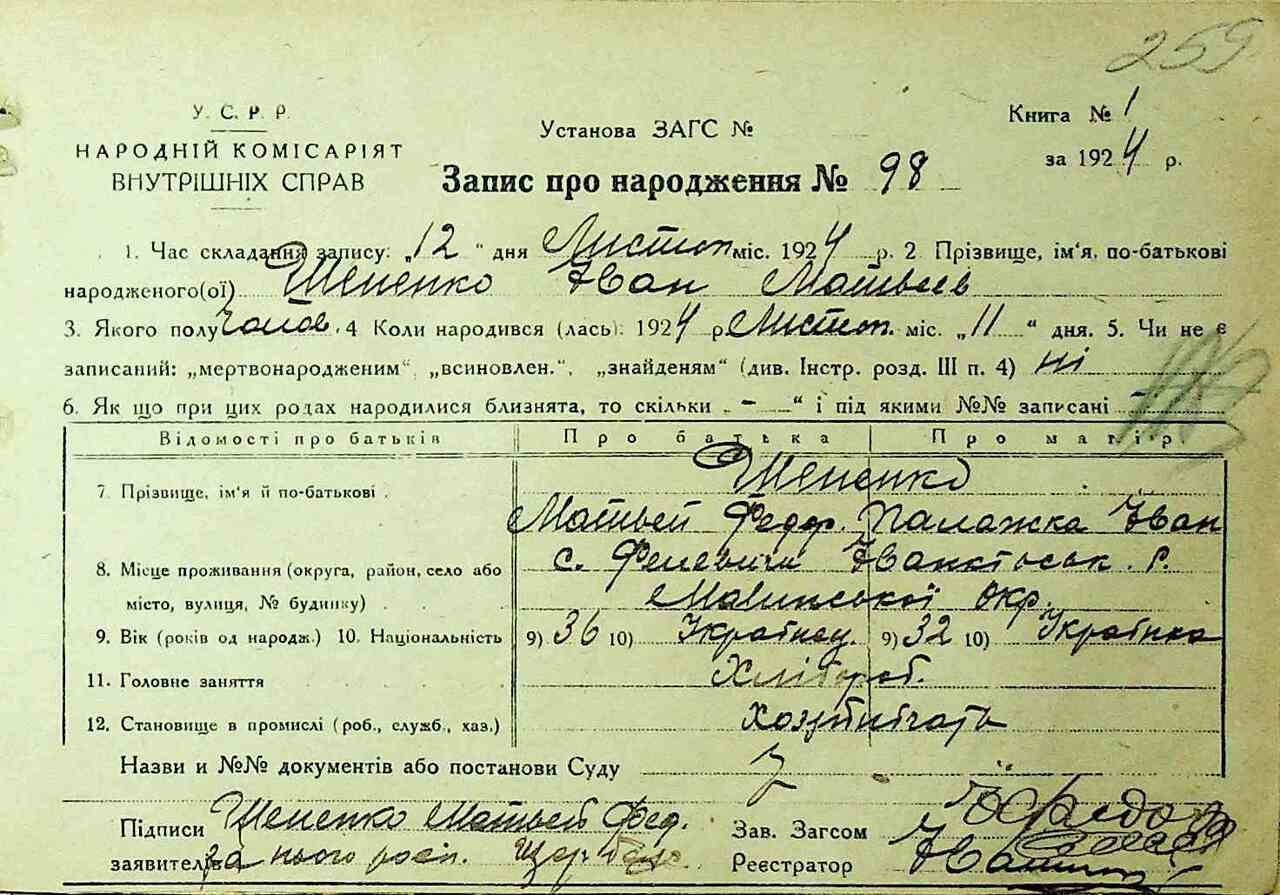 259
У. С. Р. Р.
НАРОДНІЙ КОМІСАРІЯТ
ВНУТРІШНІХ СПРАВ
Установа ЗАГС №
Книга № 1
за 1924 р.
Запис про народження № 98
1. Час складання запису: „12" дня Листоп. міс. 1924 р. 2 Прізвище, ім'я, по-батькові
народженого(ої) Шененко Іван Матвьеів
3. Якого полу Чолов. 4 Коли народився (лась): 1924 р Листоп. міс. „11" дня. 5. Чи не є
записаний: „мертвонародженим", „всиновлен.", „знайденям" (див. Інстр. розд. III п. 4) ні
6. Як що при цих родах народилися близнята, то скільки „-" і під якими №№ записані -
Відомості про батьків Про батька Про матір
7. Прізвище, ім'я й по-батькові Шененко
Матьвей Федор. Палажка Іван
8. Місце проживання (округа, район, село або с. Феневичи р.
місто, вулиця, № будинку) Малинської окр.
9. Вік (років од народж.) 10. Національність 9) 36 10) Українец. 9) 32 10) Українка
11. Головне заняття Хлібороб.
12. Становище в промислі (роб., служб., хаз.)
Назви и №№ документів або постанови Суду
Підписи Шененко Матьвей Фед. Зав. Загсом
заявителів за нього росп. Реєстратор